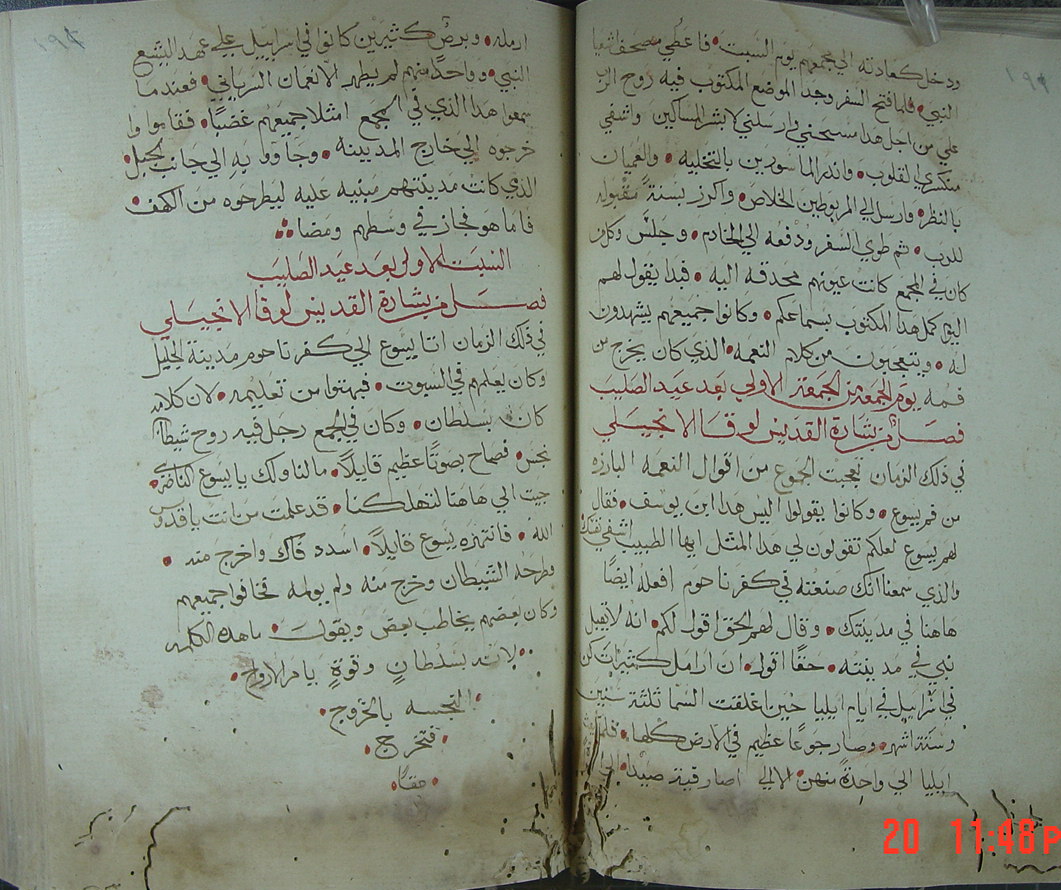 ١٩٢
ودخل كعادته الي مجمعهم يوم السبت • فاعطي مصحف اشعيا
النبي • فلما فتح السفر وجد الموضع المكتوب فيه روح الرب
علي من اجل هذا مسحني وارسلني لابشر المساكين واشفي
منكسري القلوب • وانذر الماسورين بالتخليه • والعميان
بالنظر • وارسل الي المربوطين الخلاص • واكرز بسنة مقبوله
للرب • ثم طوي السفر ودفعه الي الخادم • وجلس وكل من
كان في المجمع كانت عيونهم محدقه اليه • فبدا يقول لهم
اليوم كمل هذا المكتوب بسماعكم • وكانوا جميعهم يشهدون
له • ويتعجبون من كلام النعمه • الذي كان يخرج من
فمه يوم الجمعة من الجمعة الاولي بعد عيد الصليب
فصل من بشارة القديس لوقا الانجيلي
في ذلك الزمان تعجبت الجموع من اقوال النعمه البارزه
من فم يسوع • وكانوا يقولوا اليس هذا ابن يوسف • فقال
لهم يسوع لعلكم تقولون لي هذا المثل ايها الطبيب اشفي نفسك
والذي سمعنا انك صنعته في كفرناحوم افعله ايضًا
هاهنا في مدينتك • وقال لهم الحق اقول لكم • انه لا يقبل
نبي في مدينته • حقًا اقول • ان ارامل كثيرات كن
في اسراييل في ايام ايليا حين اغلقت السما ثلثة سنين
وستة اشهر • وصار جوعًا عظيم في الارض كلها •
ايليا الي واحدة منهن • الا الي صارفية صيدا •
١٩٣
ارمله • وبرص كثيرين كانوا في اسراييل علي عهد اليشع
النبي • وواحدًا منهم لم يطهر الا نعمان السرياني • فعندما
سمعوا هذا الذي في المجمع امتلا جميعهم غضبًا • فقاموا وا
خرجوه الي خارج المدينه • وجاووا به الي جانب الجبل •
الذي كانت مدينتهم مبنيه عليه ليطرحوه من الكهف •
فاما هو فجاز في وسطهم ومضا
السبت الاولي بعد عيد الصليب
فصل من بشارة القديس لوقا الانجيلي
في ذلك الزمان اتا يسوع الي كفرناحوم مدينة الجليل
وكان يعلمهم في السبوت • فبهتوا من تعليمه • لان كلامه
كان بسلطان • وكان في المجمع رجل فيه روح شيطان
نجس • فصاح بصوتًا عظيم قايلًا • ما لنا ولك يا يسوع الناصري •
جيت الي هاهنا لتهلكنا • قد علمت من انت يا قدوس
الله • فانتهره يسوع قايلًا • اسدد فاك واخرج منه •
وطرحه الشيطان وخرج منه ولم يولمه فخافوا جميعهم
وكان بعضهم يخاطب بعض ويقول • ما هذه الكلمه
لانه بسلطانٍ وقوةٍ يامر الارواح •
النجسه بالخروج •
فتخرج •
حقًا •
20 11:48 P